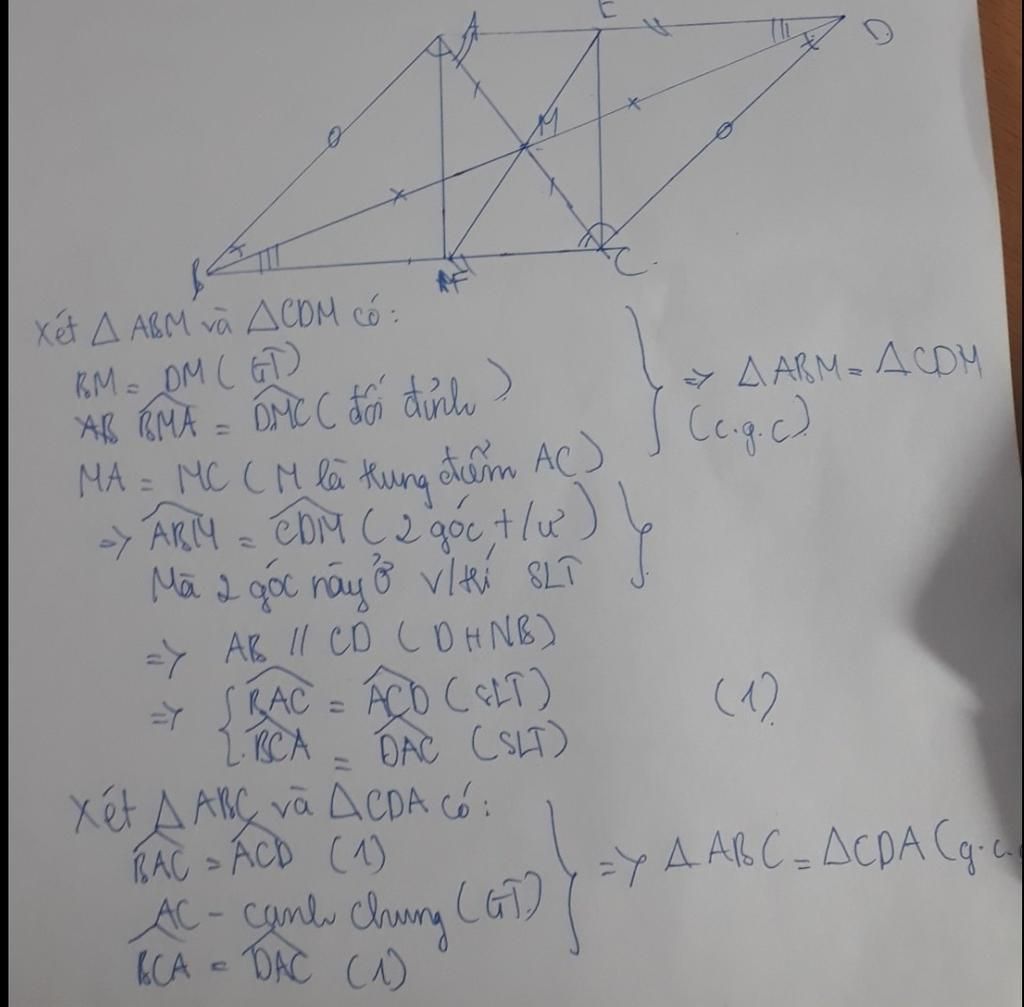 A E D
M
B F C
Xét △ ABM và △CDM có:
BM = DM (GT)
BMA = DMC (đối đỉnh)
MA = MC (M là trung điểm AC)
=> △ABM = △CDM
(c.g.c)
=> ABM = CDM (2 góc t/ư)
Mà 2 góc này ở v/trí SLT
=> AB // CD (DHNB)
=> { BAC = ACD (SLT)
BCA = DAC (SLT)
(1)
Xét △ABC và △CDA có:
BAC = ACD (1)
AC - cạnh chung (GT)
BCA = DAC (1)
=> △ABC = △CDA (g.c.